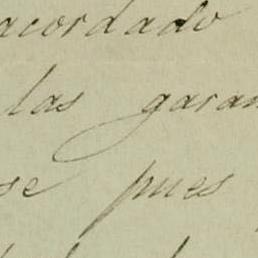 acordado
las garan
se pues